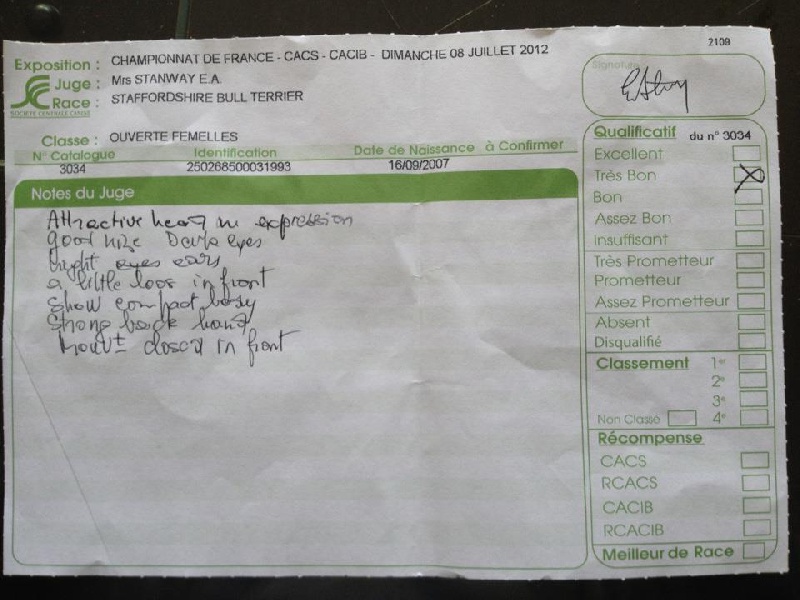 2109
Exposition : CHAMPIONNAT DE FRANCE - CACS - CACIB - DIMANCHE 08 JUILLET 2012
Juge : Mrs STANWAY E.A.
Race : STAFFORDSHIRE BULL TERRIER
SOCIETE CENTRALE CANINE
Classe : OUVERTE FEMELLES
N° Catalogue Identification Date de Naissance à Confirmer
3034 250268500031993 16/09/2007
Notes du Juge
Attractive head expression
good size Dark eyes
eyes ears
a little loos in front
Show compact body
Strong back hand
closer in front
Signature
Qualificatif du n° 3034
Excellent
Très Bon
Bon
Assez Bon
Insuffisant
Très Prometteur
Prometteur
Assez Prometteur
Absent
Disqualifié
Classement 1er
2e
3e
Non Classé 4e
Récompense
CACS
RCACS
CACIB
RCACIB
Meilleur de Race